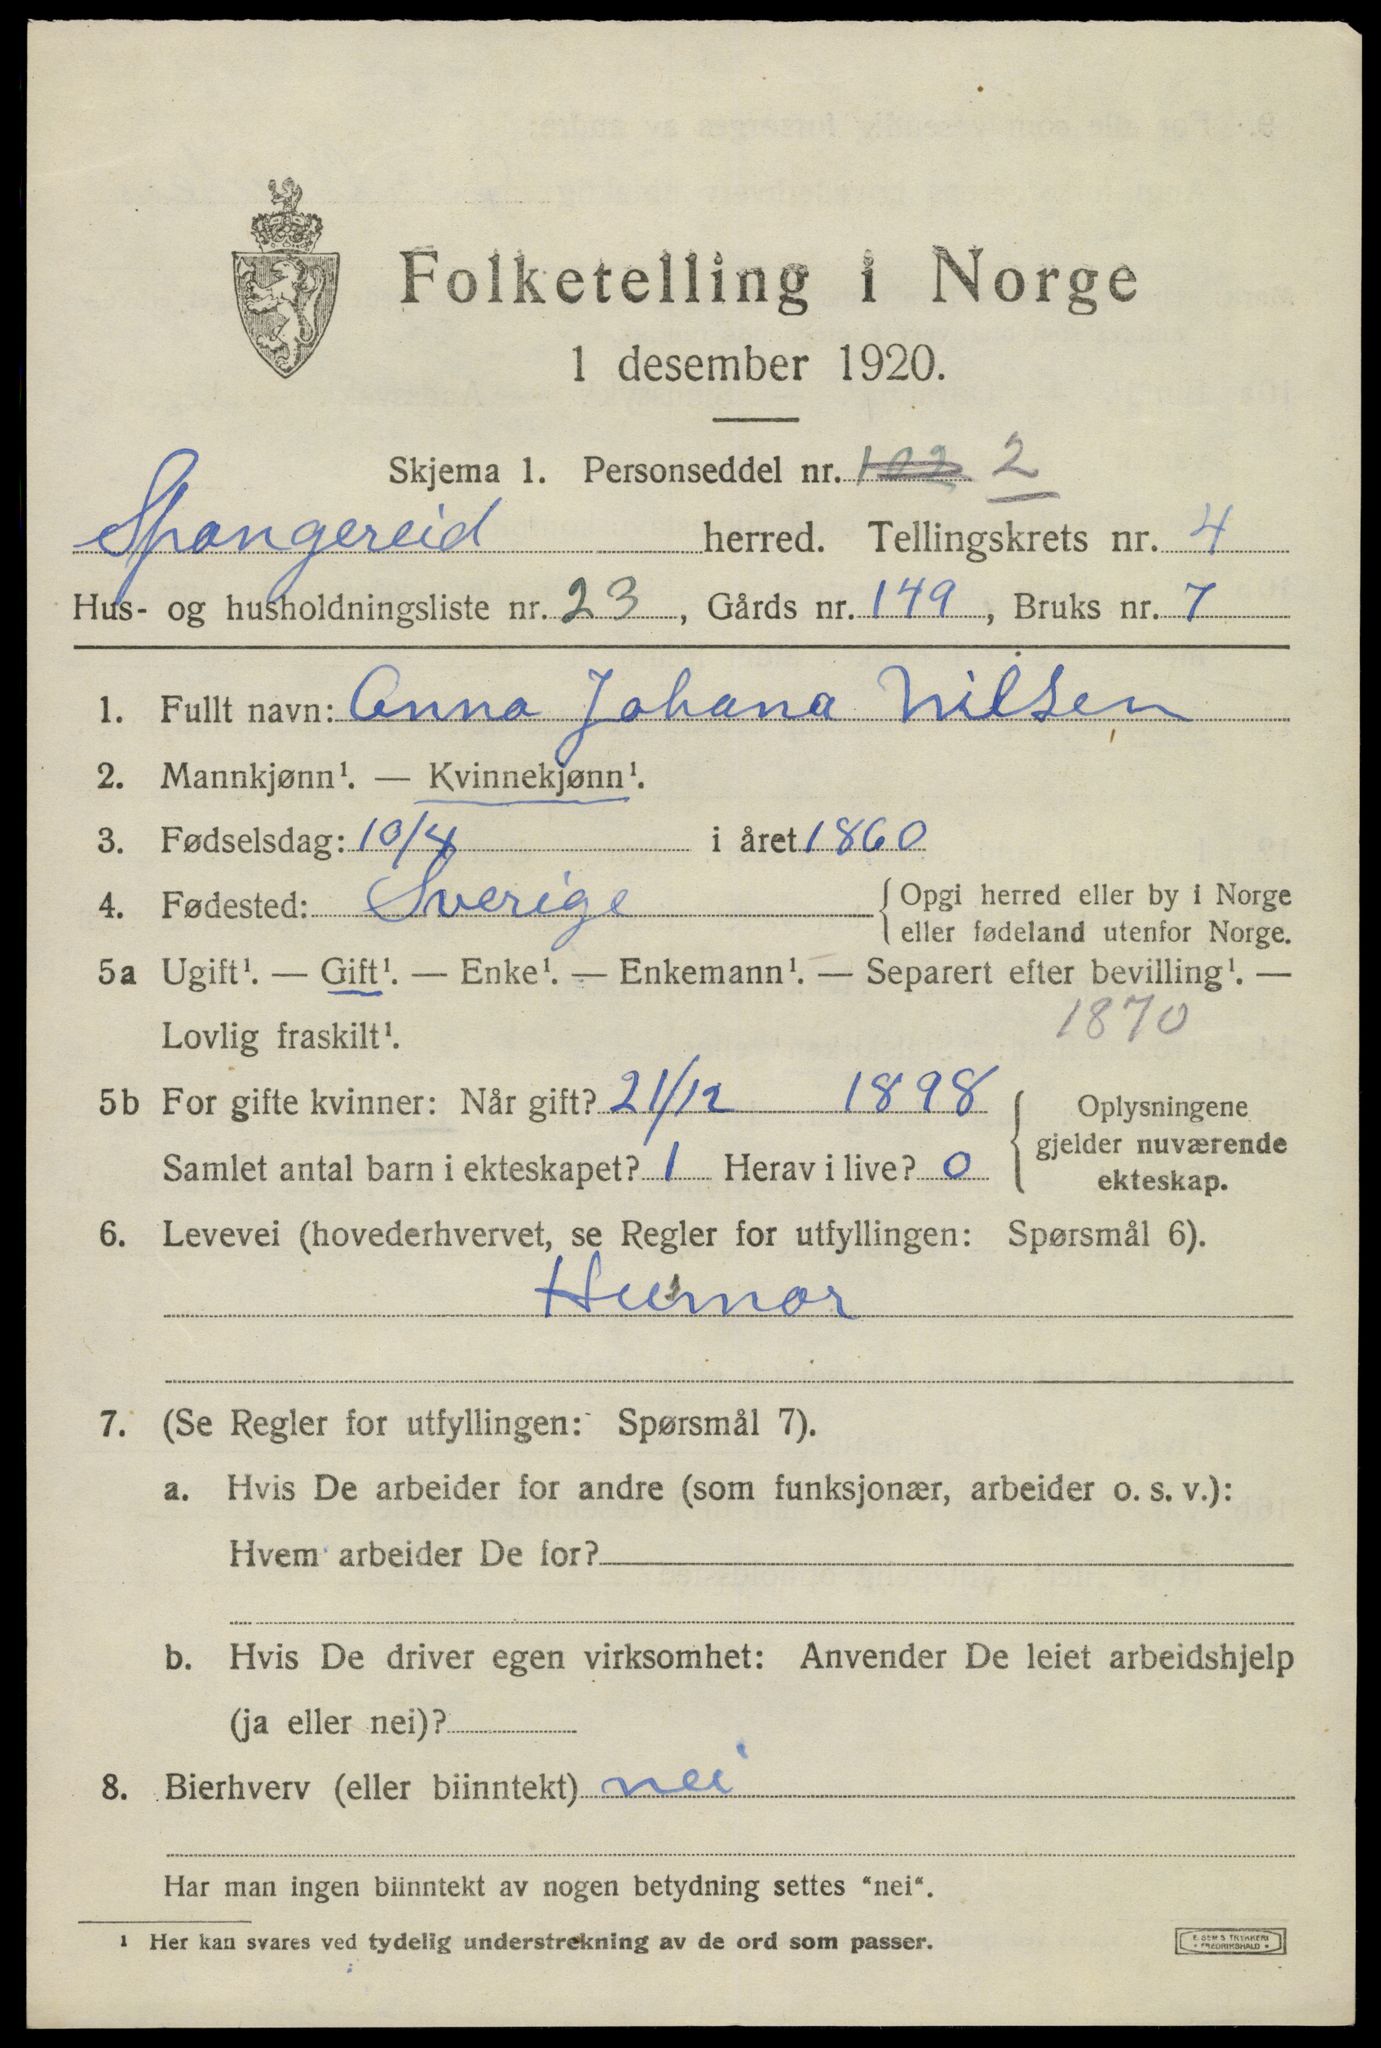 Folketelling i Norge
1 desember 1920.
Skjema 1. Personseddel nr. 102 2
Spangereid herred. Tellingskrets nr. 4
Hus- og husholdningsliste nr. 23, Gårds nr. 149, Bruks nr. 7
1. Fullt navn: Anna Johana Nilsen
2. Mannkjønn¹. — Kvinnekjønn¹.
3. Fødselsdag: 10/4 i året 1860
4. Fødested: Sverige { Opgi herred eller by i Norge
eller fødeland utenfor Norge.
5a Ugift¹. — Gift¹. — Enke¹. — Enkemann¹. — Separert efter bevilling¹. —
Lovlig fraskilt¹. 1870
5b For gifte kvinner: Når gift? 21/12 1898 { Oplysningene
gjelder nuværende
Samlet antal barn i ekteskapet? 1 Herav i live? 0 ekteskap.
6. Levevei (hovederhvervet, se Regler for utfyllingen: Spørsmål 6).
Husmor
7. (Se Regler for utfyllingen: Spørsmål 7).
a. Hvis De arbeider for andre (som funksjonær, arbeider o. s. v.):
Hvem arbeider De for?
b. Hvis De driver egen virksomhet: Anvender De leiet arbeidshjelp
(ja eller nei)?
8. Bierhverv (eller biinntekt) nei
Har man ingen biinntekt av nogen betydning settes "nei".
¹ Her kan svares ved tydelig understrekning av de ord som passer.
E. SEM'S TRYKKERI
• FREDRIKSHALD •